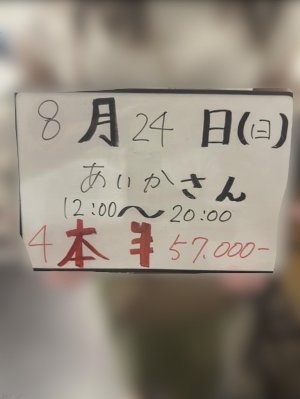 8月24日(日)
あいかさん
12:00〜20:00
4本 ¥57.000-